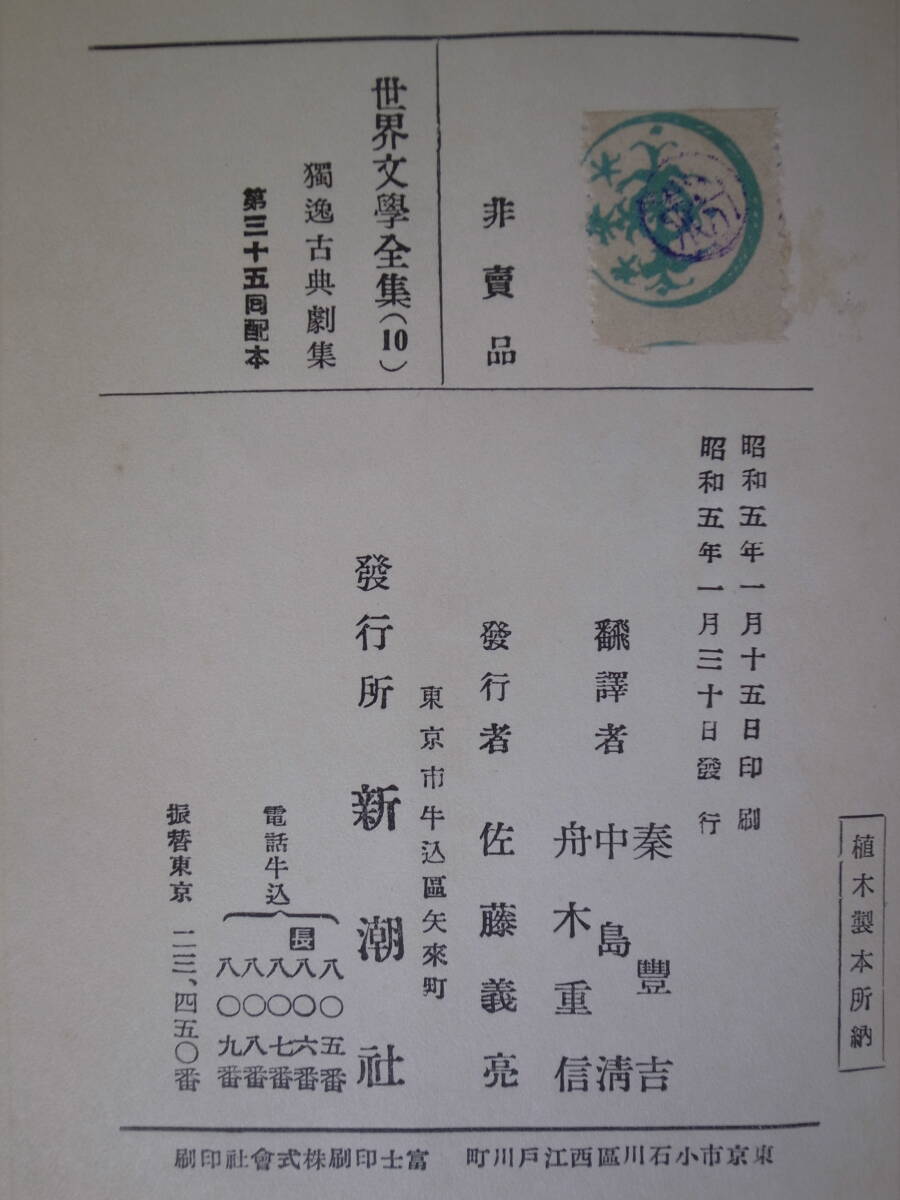 非賣品
世界文學全集(10)
獨逸古典劇集
第三十五回配本
昭和五年一月十五日印刷
昭和五年一月三十日發行
飜譯者
秦豐吉
中島淸
舟木重信
發行者 佐藤義亮
東京市牛込區矢來町
發行所 新潮社
電話牛込
八〇五番
長八〇六番
八〇七番
八〇八番
八〇九番
振替東京 二三、四五〇番
植木製本所納
東京市小石川區西江戸川町 富士印刷株式會社印刷